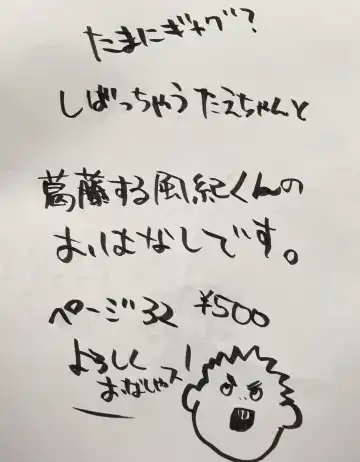 たまにギャグ?
しばっちゃうたえちゃんと
葛藤する風紀くんの
おはなしです。
ページ32 ¥500
よろしく
おなしゃス!